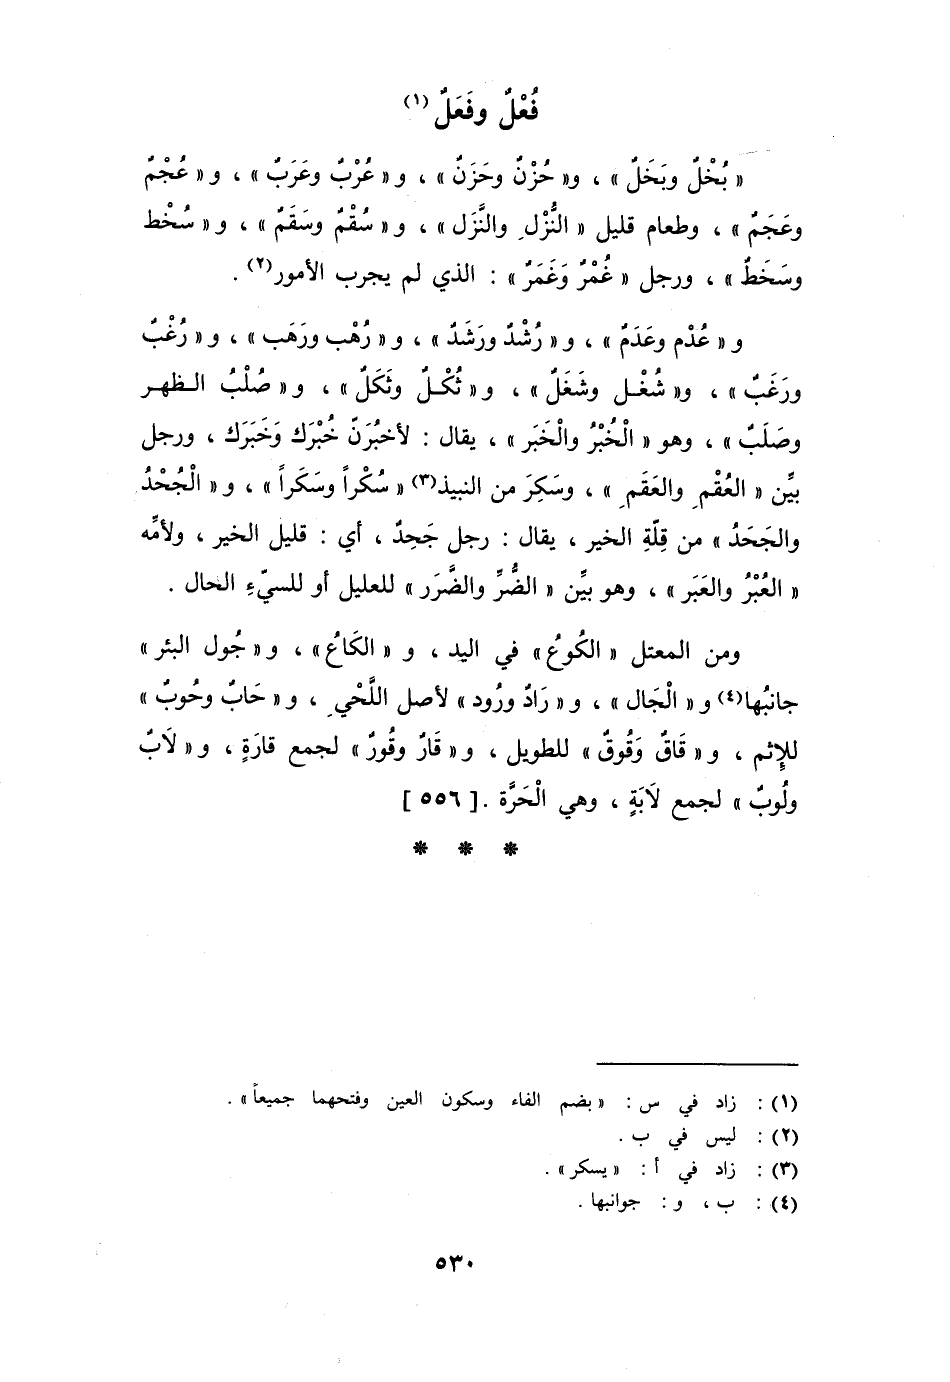 فُعْلٌ وفَعَلٌ (١)
« بُخْلٌ وبَخَلٌ » ، و« حُزْنٌ وحَزَنٌ » ، و « عُرْبٌ وعَرَبٌ » ، و « عُجْمٌ
وعَجَمٌ » ، وطعام قليل « النُّزْلِ والنَّزَل » ، و « سُقْمٌ وسَقَمٌ » ، و « سُخْط
وسَخَطٌ » ، ورجل « غُمْرٌ وَغَمَرٌ » : الذي لم يجرب الأمور(٢) .
و « عُدْم وعَدَمٌ » ، و « رُشْدٌ ورَشَدٌ » ، و « رُهْب ورَهَب » ، و « رُغْبٌ
ورَغَبٌ » ، و« شُغْـل وشَغَلٌ » ، و « ثُكْـلٌ وثَكَلٌ » ، و « صُلْبُ الـظهـر
وصَلَبٌ » ، وهو « الْخُبْرُ والْخَبَر » ، يقال : لأخبُرَنّ خُبْرَك وَخَبَرَك ، ورجل
بيِّن « العُقْمِ والعَقَمِ » ، وسَكِرَ من النبيذ(٣) « سُكْراً وسَكَراً » ، و « الْجُحْدُ
والجَحَدُ » من قِلّةِ الخير ، يقال : رجل جَحِدٌ ، أي : قليل الخير ، ولأمِّه
« العُبْرُ والعَبَر » ، وهو بيِّن « الضُّرِّ والضَّرَر » للعليل أو للسيّءِ الحال .
ومن المعتل « الكُوعُ » في اليد ، و « الكَاعُ » ، و « جُول البئر »
جانبُها(٤) و « الْجَال » ، و « رَادٌ ورُود » لأصل اللَّحْيِ ، و « حَابٌ وحُوبٌ »
للإِثم ، و « قَاقٌ وَقُوقٌ » للطويل ، و « قَارٌ وقُورٌ » لجمع قارَةٍ ، و « لَابٌ
ولُوبٌ » لجمع لَابَةٍ ، وهي الْحَرَّة .[ ٥٥٦ ]
* * *
(١) : زاد في س : « بضم الفاء وسكون العين وفتحهما جميعاً » .
(٢) : ليس في ب .
(٣) : زاد في أ : « يسكر » .
(٤) : ب ، و : جوانبها .
٥٣٠